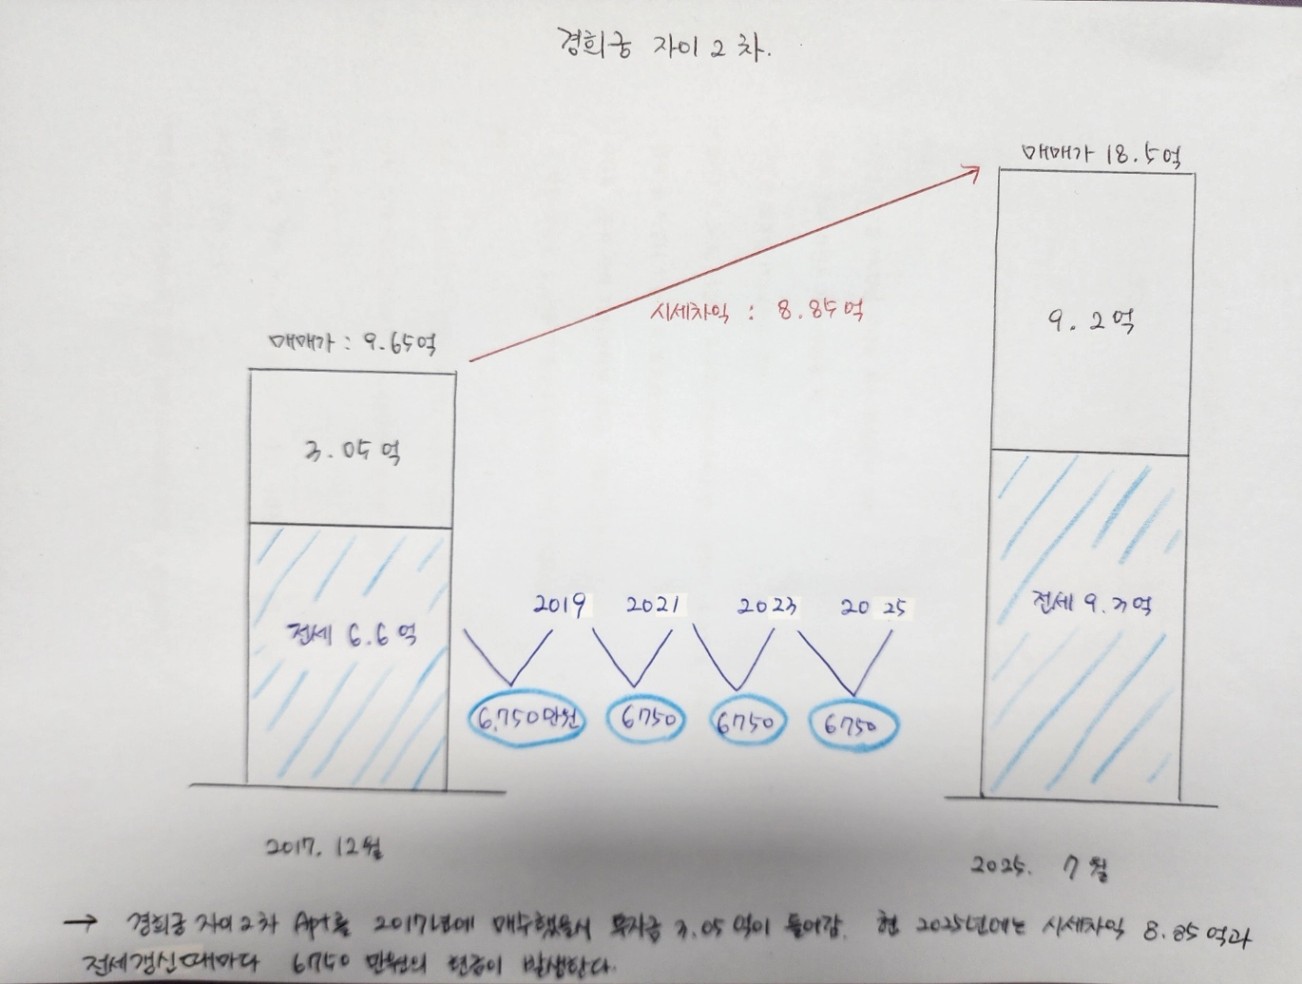 경희궁 자이 2차.
매매가 18.5억
시세차익 : 8.85억
9.2억
매매가 : 9.65억
3.05억
2019 2021 2023 2025
전세 9.3억
전세 6.6억
6,750만원 6750 6750 6750
2017. 12월
2025. 7월
→ 경희궁 자이2차 Apt를 2017년에 매수했을시 투자금 3.05억이 들어감. 현 2025년에는 시세차익 8.85억과
전세갱신때마다 6750만원의 현금이 발생한다.